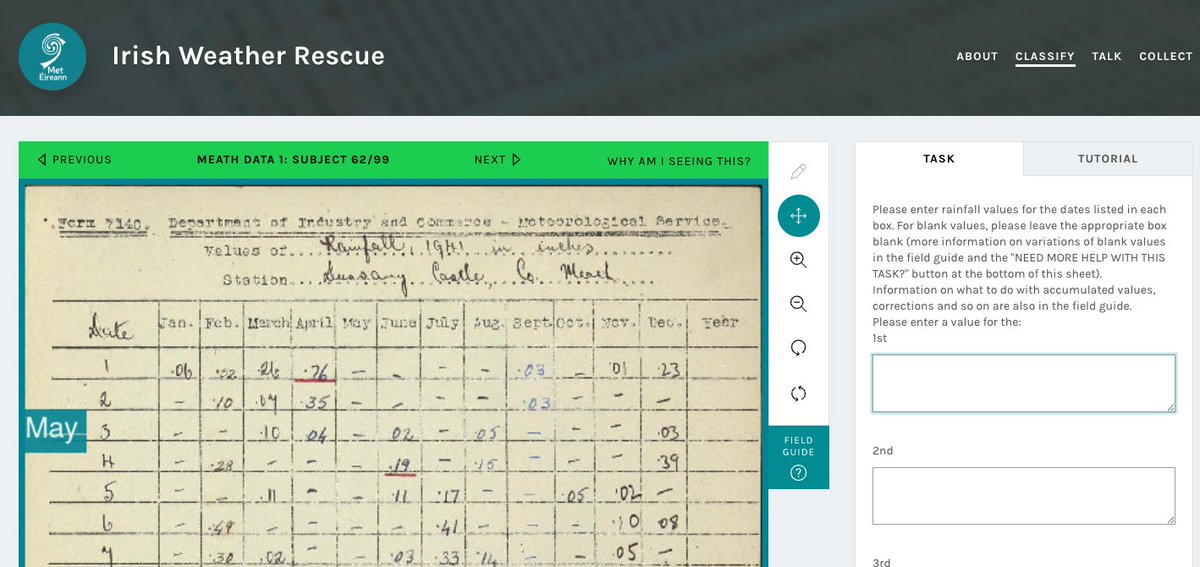 Met
Éireann
Irish Weather Rescue
ABOUT CLASSIFY TALK COLLECT
PREVIOUS MEATH DATA 1: SUBJECT 62/99 NEXT WHY AM I SEEING THIS?
TASK TUTORIAL
Form 7140. Department of Industry and Commerce - Meteorological Service.
Values of... Rainfall, 1941 in inches
Station... Castle, Co. Meath
Date Jan. Feb. March April May June July Aug. Sept. Oct. Nov. Dec. Year
1 .06 .02 .26 .76 — — — — .03 — .01 .23
2 — .10 .07 .35 — — — — .03 — — —
May
3 — — .10 .04 — .02 — .05 — — — .03
4 — .28 — — — .19 — .15 — — — .39
5 — — .11 — — .11 .17 — — .05 .02 —
6 — .49 — — — — .41 — — — .10 .08
7 — .30 .02 — — .03 .33 .14 — — .05 —
FIELD
GUIDE
Please enter rainfall values for the dates listed in each
box. For blank values, please leave the appropriate box
blank (more information on variations of blank values
in the field guide and the "NEED MORE HELP WITH THIS
TASK?" button at the bottom of this sheet).
Information on what to do with accumulated values,
corrections and so on are also in the field guide.
Please enter a value for the:
1st
2nd
3rd